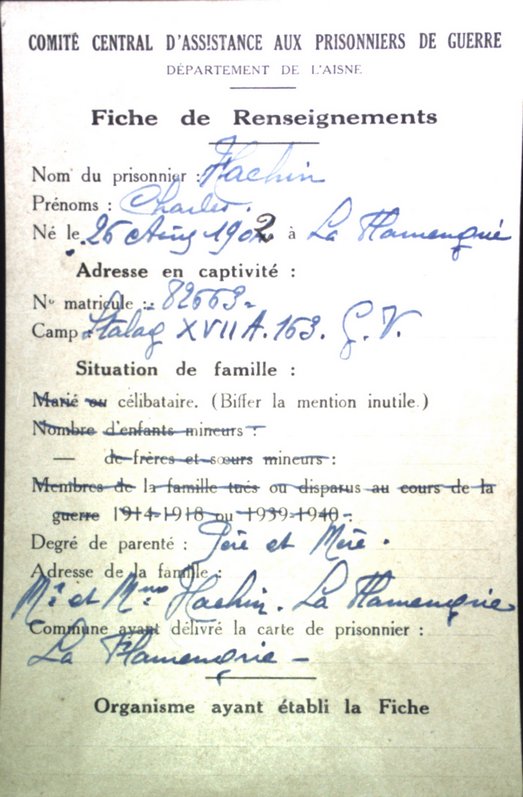 COMITÉ CENTRAL D'ASSISTANCE AUX PRISONNIERS DE GUERRE
DÉPARTEMENT DE L'AISNE
Fiche de Renseignements
Nom du prisonnier : Hachin
Prénoms : Charles.
Né le 26 Aug 1902 à La Flamengrie
Adresse en captivité :
N° matricule : 82663-
Camp : Stalag XVII A. 153. G. V.
Situation de famille :
Marié ou célibataire. (Biffer la mention inutile.)
Nombre d'enfants mineurs :
— de frères et sœurs mineurs :
Membres de la famille tués ou disparus au cours de la
guerre 1914-1918 ou 1939-1940 :
Degré de parenté : Père et Mère.
Adresse de la famille :
Mr et Mme Hachin. La Flamengrie
Commune ayant délivré la carte de prisonnier :
La Flamengrie -
Organisme ayant établi la Fiche